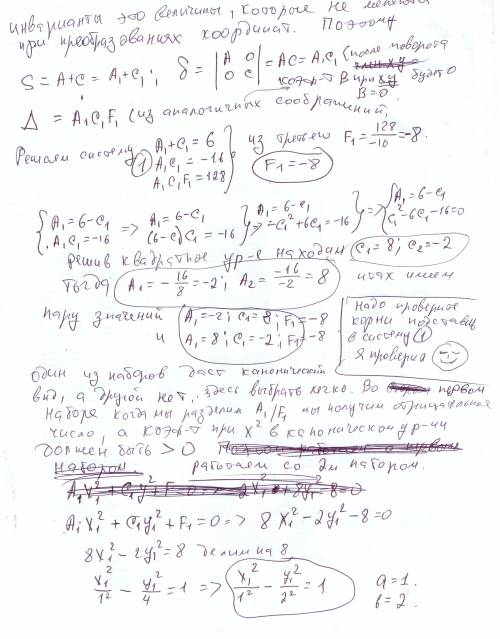 инварианты это величины, которые не меняются
при преобразованиях координат. Поэтому
S = A+C = A₁+C₁; δ = |A 0; 0 C| = AC = A₁C₁ (после поворота
коэф-т B при xy будет 0
B=0.
Δ = A₁C₁F₁ (из аналогичных соображений)
Решаем систему ① { A₁+C₁ = 6
A₁C₁ = -16
A₁C₁F₁ = 128 } из третьего F₁ = 128/-16 = -8.
F₁ = -8
{ A₁ = 6-C₁
A₁C₁ = -16 => A₁ = 6-C₁
(6-C₁)C₁ = -16 } => A₁ = 6-C₁
-C₁²+6C₁ = -16 } => { A₁ = 6-C₁
C₁²-6C₁-16=0
Решив квадратное ур-е находим C₁ = 8; C₂ = -2
Тогда A₁ = -16/8 = -2; A₂ = -16/-2 = 8 итак имеем
пару значений A₁ = -2; C₁ = 8; F₁ = -8
и A₁ = 8; C₁ = -2; F₁ = -8
надо проверить
корни подставив
в систему ①
Я проверил
один из наборов даст канонический
вид, а другой нет. здесь выбрать легко. Во первом
наборе когда мы разделим A₁/F₁ мы получим отрицательное
число, а коэф-т при x² в каноническом ур-нии
должен быть > 0
работаем со 2м набором.
A₁x₁² + C₁y₁² + F₁ = 0 => 8x₁² - 2y₁² - 8 = 0
8x₁² - 2y₁² = 8 делим на 8
x₁²/1² - y₁²/4 = 1 => x₁²/1² - y₁²/2² = 1 a = 1.
b = 2.